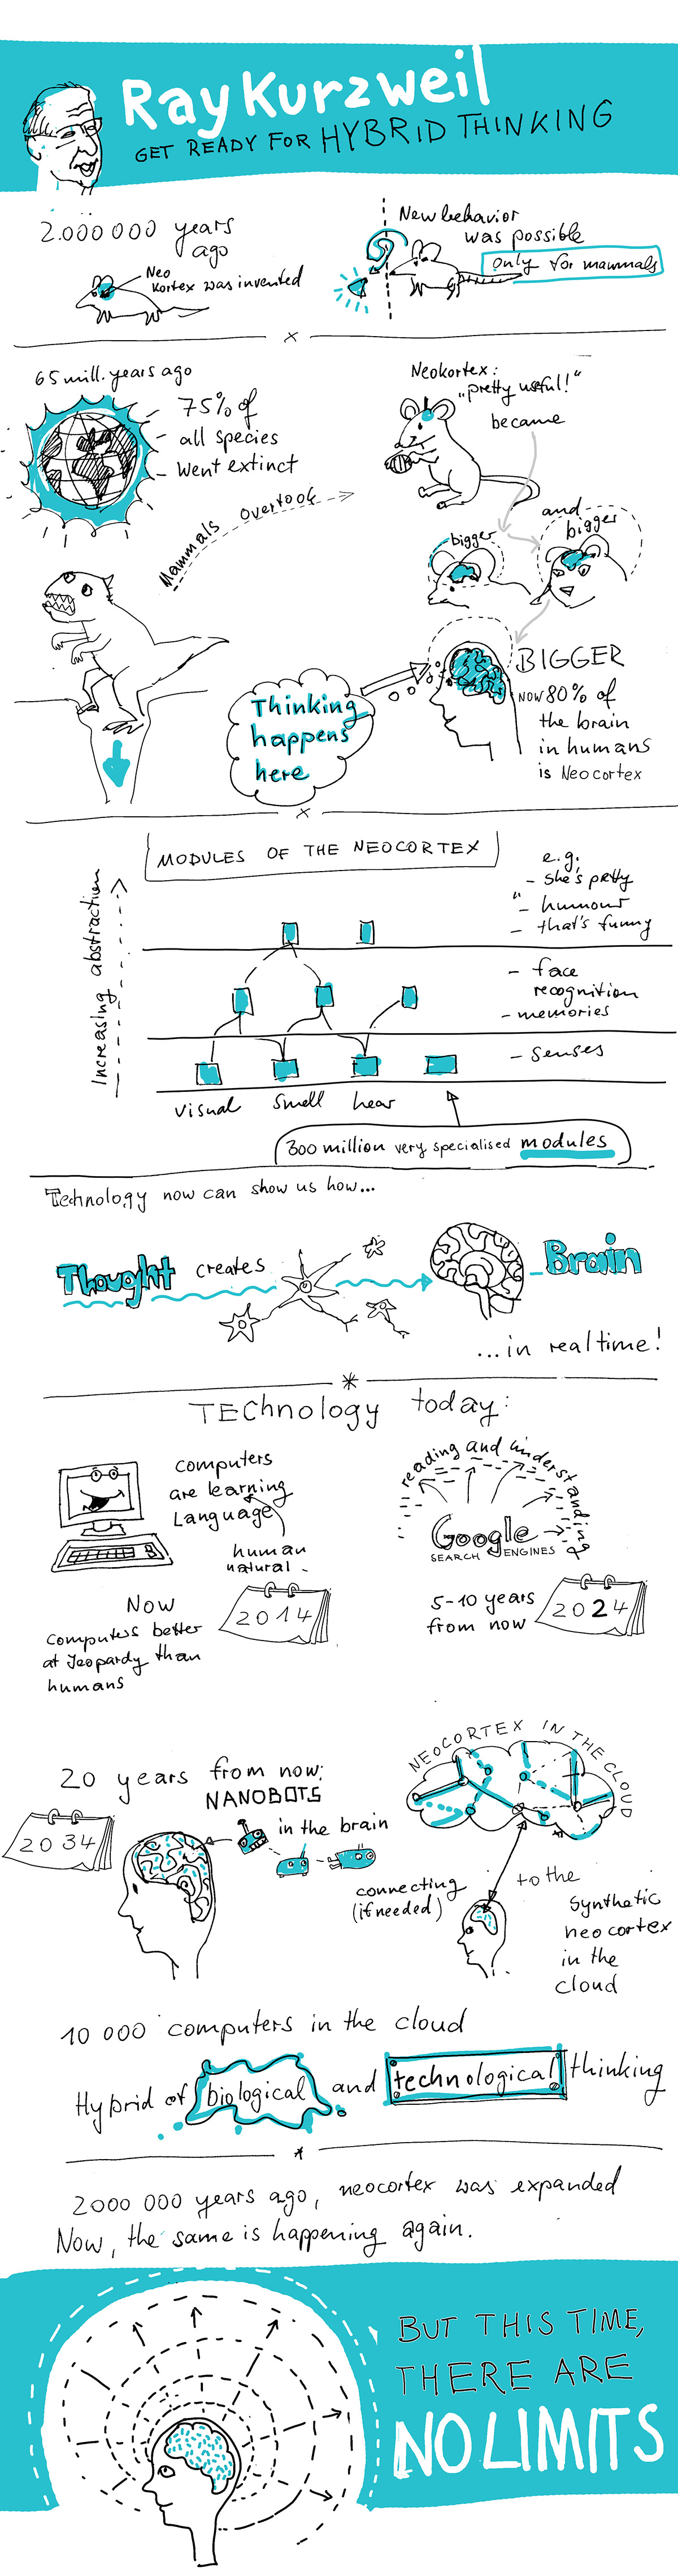 Ray Kurzweil
GET READY FOR HYBRID THINKING
2.000 000 years
ago
Neo
kortex was invented
New behavior
was possible
only for mammals
65 mill. years ago
75% of
all species
went extinct
Mammals overtook
Neokortex:
„pretty useful!“
became
bigger
and
bigger
BIGGER
NOW 80% of
the brain
in humans
is Neocortex
Thinking
happens
here
MODULES OF THE NEOCORTEX
Increasing abstraction
e.g.
- she's pretty
- humour
- that's funny
- face
recognition
- memories
- senses
visual smell hear
300 million very specialised modules
Technology now can show us how...
Thought creates Brain
...in realtime!
TECHnology today:
computers
are learning
Language
human
natural
reading and understanding
Google
SEARCH ENGINES
Now
computers better
at Jeopardy than
humans
2014
5-10 years
from now
2024
20 years from now:
NANOBOTS
in the brain
2034
NEOCORTEX IN THE CLOUD
connecting
(if needed)
to the
synthetic
neocortex
in the
cloud
10 000 computers in the cloud
Hybrid of biological and technological thinking
2000 000 years ago, neocortex was expanded
Now, the same is happening again.
BUT THIS TIME,
THERE ARE
NO LIMITS